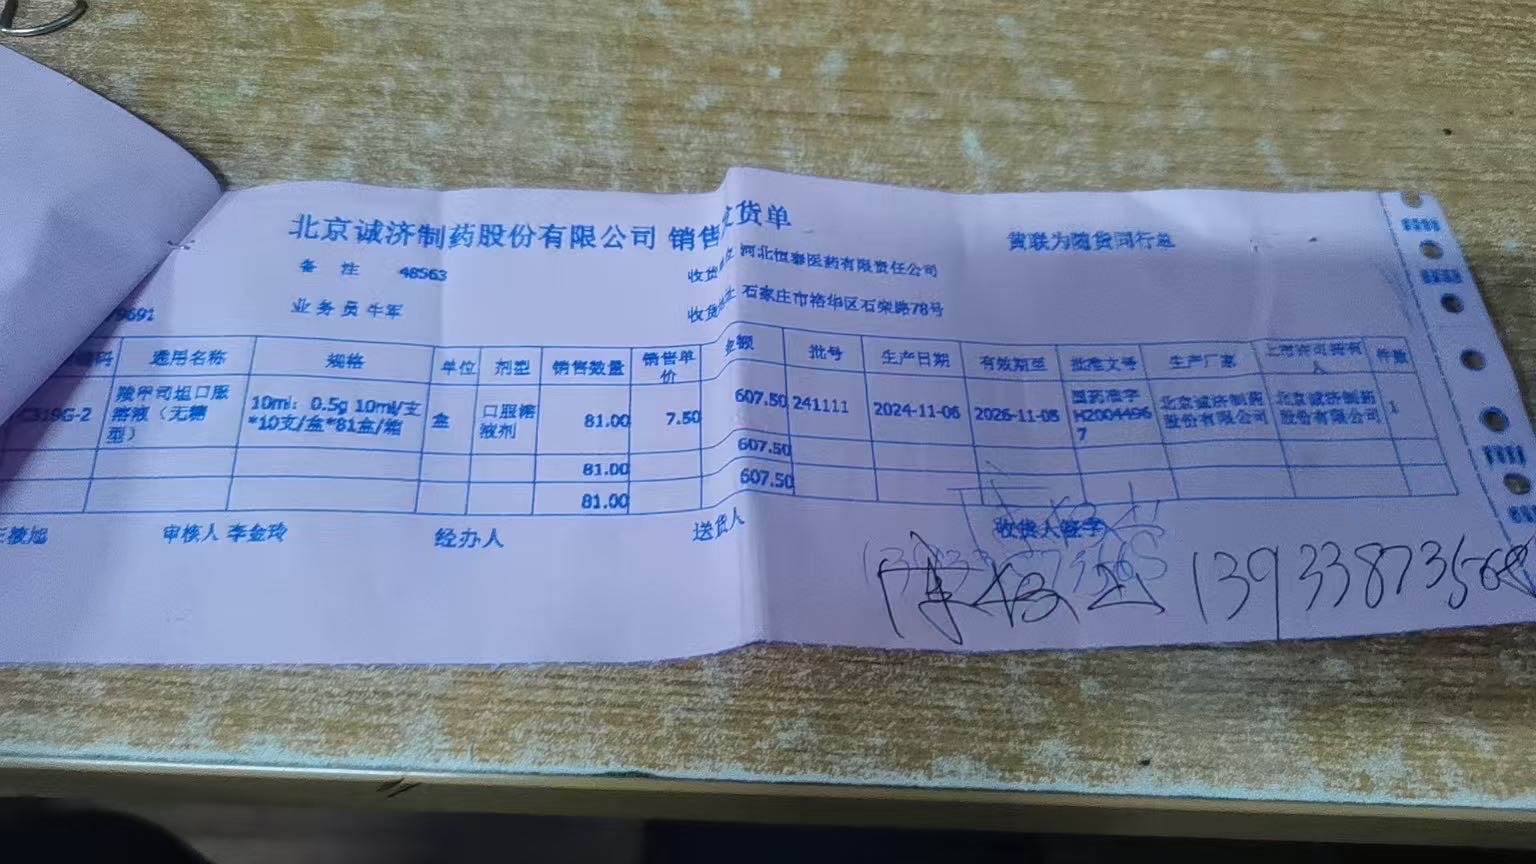 北京诚济制药股份有限公司 销售 货单
黄联为随货同行总
备 注 48563
收货 河北恒泰医药有限责任公司
9691
业务员 牛军
收货 石家庄市裕华区石栾路78号
通用名称 规格 单位 剂型 销售数量 销售单价 金额 批号 生产日期 有效期至 批准文号 生产厂家 上市许可持有人 件数
319G-2 羧甲司坦口服溶液（无糖型） 10ml：0.5g 10ml/支*10支/盒*81盒/箱 盒 口服溶液剂 81.00 7.50 607.50 241111 2024-11-06 2026-11-05 国药准字H20044967 北京诚济制药股份有限公司 北京诚济制药股份有限公司 1
81.00 607.50
81.00 607.50
审核人 李金玲 经办人 送货人 收货人签字
13933873568